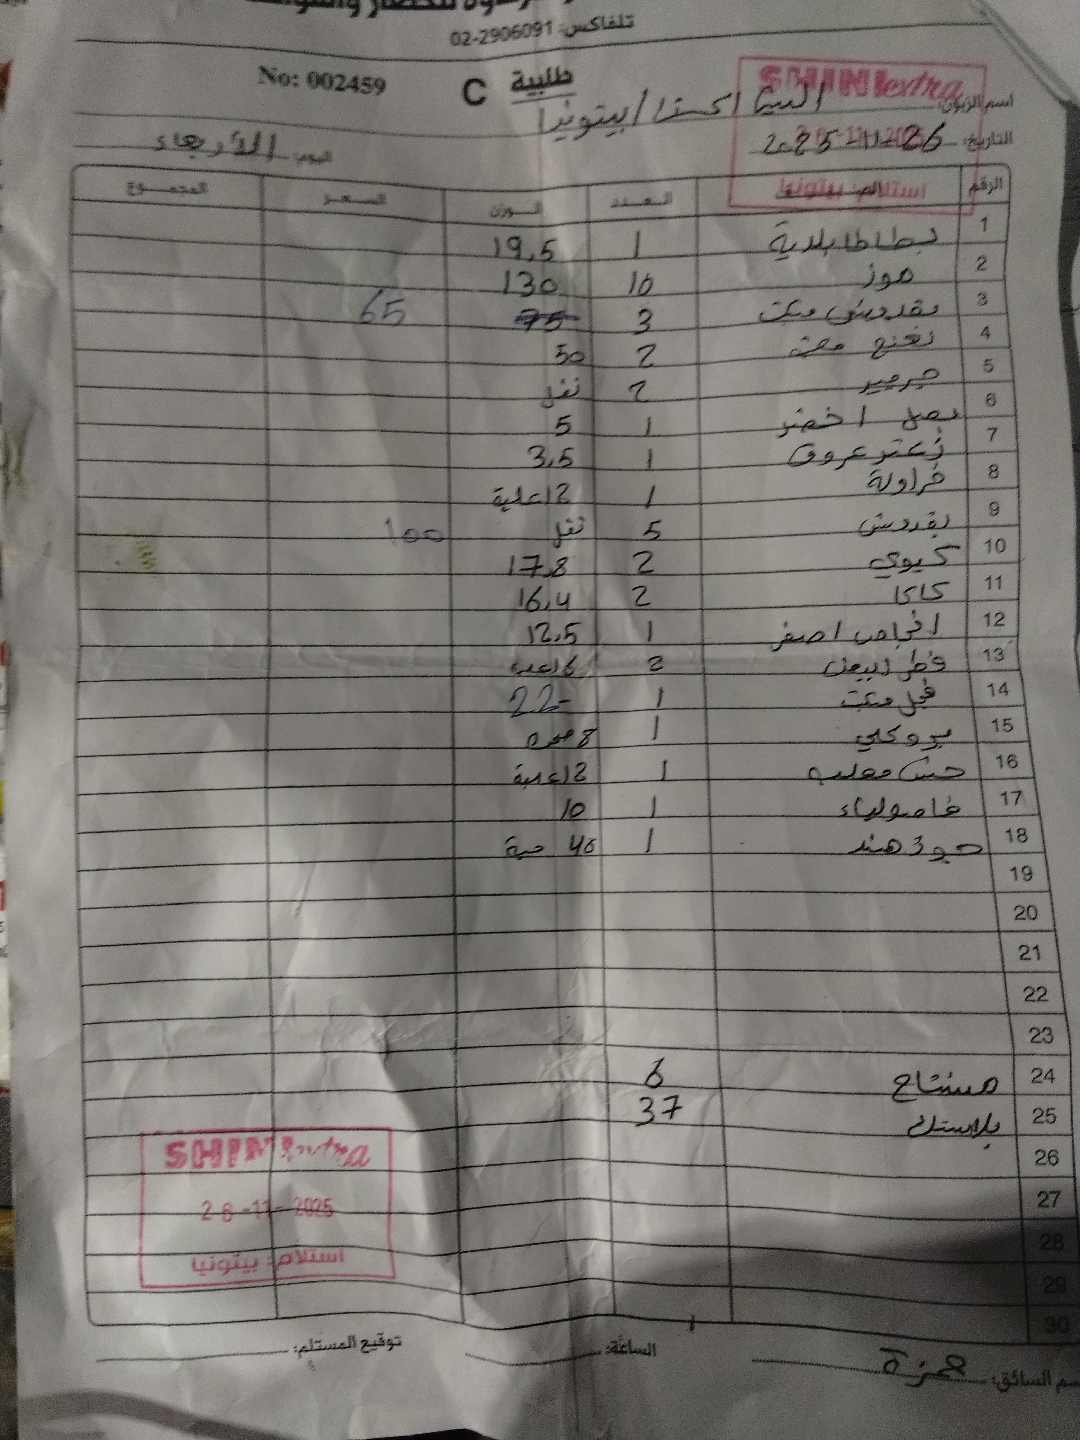 تلفاكس: 02-2906091
No: 002459 طلبية C
SHINI extra
اسم الزبون: السنا اكسترا / بيتونيا
التاريخ: 26-11-2025 اليوم: الأربعاء
استلام: بيتونيا
الرقم العدد الوزن السعر المجموع
1 بطاطا بلدية 1 19,5
2 موز 10 130
3 بقدونس مكبت 3 75 65
4 نعنع معرق 2 50
5 جرجير 2 نفل
6 بصل اخضر 1 5
7 زعتر عروق 1 3,5
8 فراولة 1 12 علبة
9 بقدونس 5 نفل 100
10 كيوي 2 17,8
11 كاكا 2 16,4
12 انجاص اصفر 1 12,5
13 فطر ابيض 2 16 علبة
14 فجل مكبت 1 22
15 بروكلي 1 8
16 خس معلب 1 12 علبة
17 فاصولياء 1 10
18 جوز هند 1 40 حبة
19
20
21
22
23
24 مشتاح 6
25 بلاستك 37
26
27
28
29
30
SHINI extra
26-11-2025
استلام: بيتونيا
اسم السائق: حمزة الساعة: توقيع المستلم: